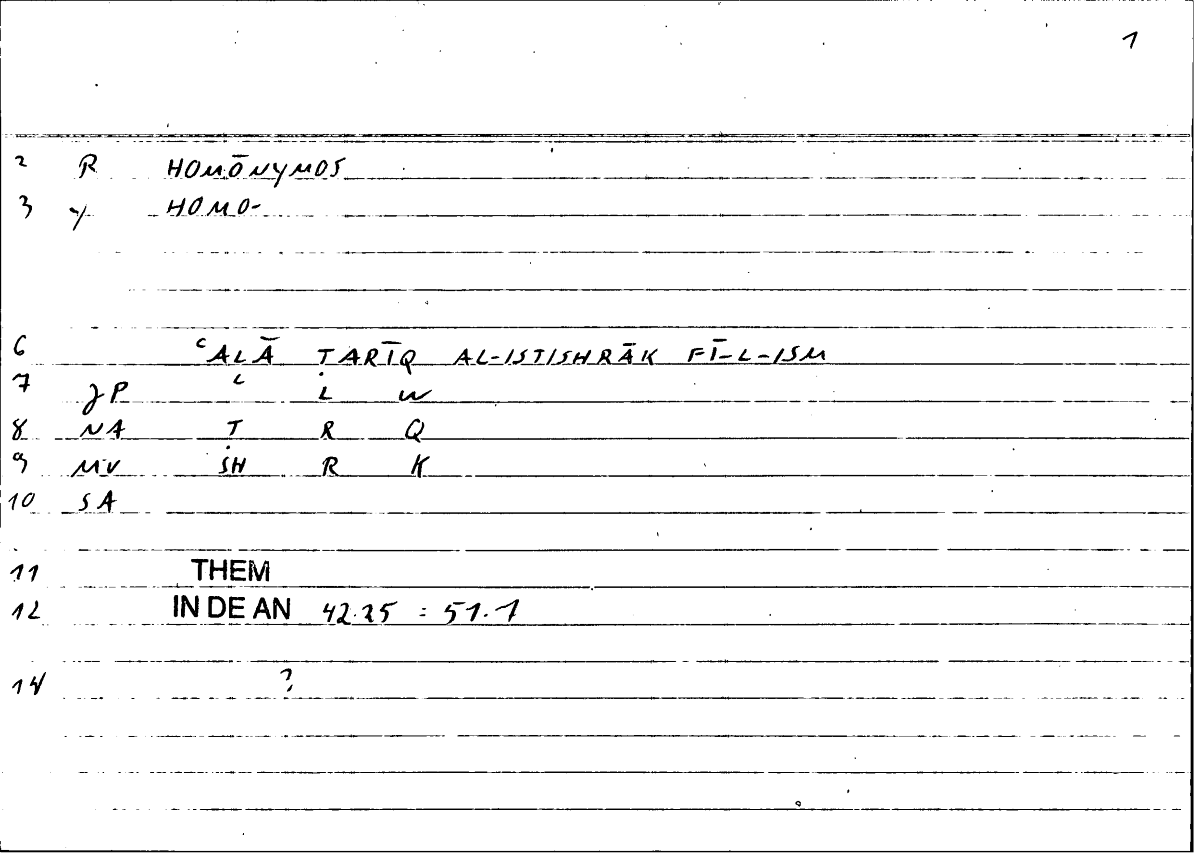 1
2 R HOMŌNYMOS
3 y HOMO-
6 ʿALĀ ṬARĪQ AL-ISTISHRĀK FĪ-L-ISM
7 JP ʿ L W
8 NA Ṭ R Q
9 MV SH R K
10 SA
11 THEM
12 IN DE AN 42.25 : 51.1
14 ?